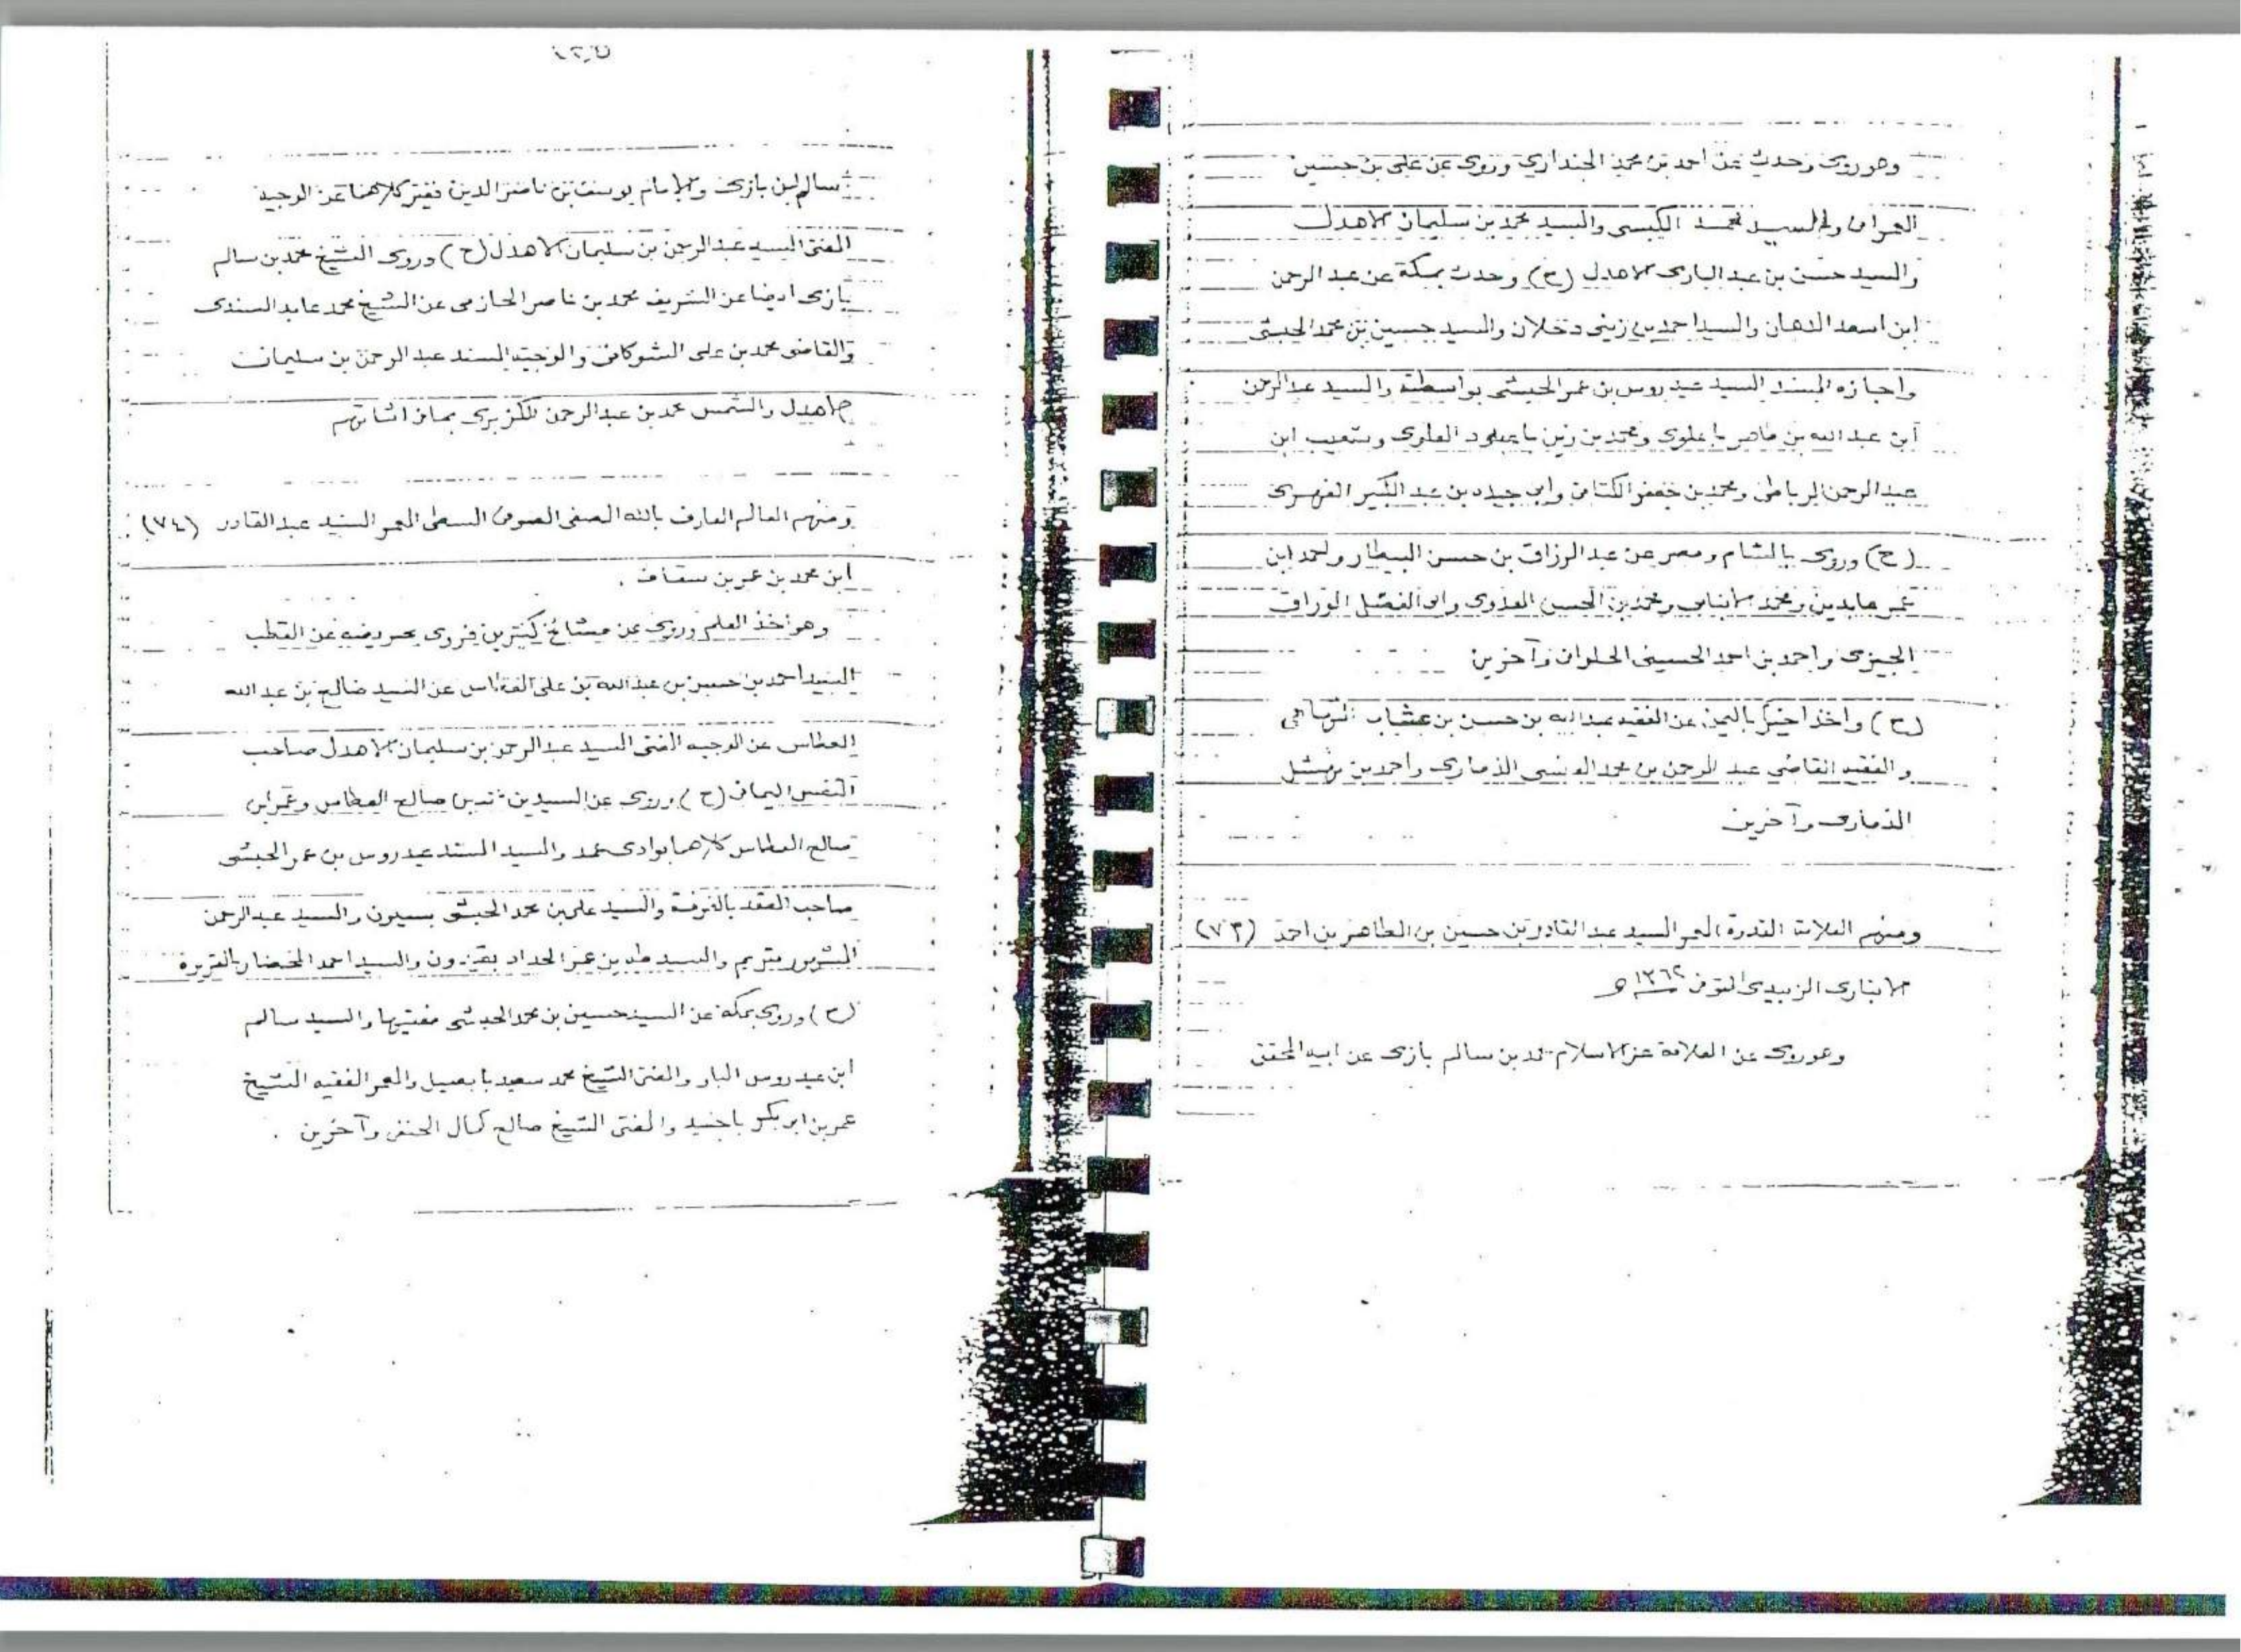 وهو روى وحدث عن أحمد بن محمد الجنداري وروى عن علي بن حسين
والسيد محمد الكبسي والسيد محمد بن سليمان الاهدل
والسيد حسن بن عبد الباري الاهدل (ح) وحدث بمكة عن عبد الرحمن
ابن اسعد الدهان والسيد احمد بن زيني دحلان والسيد حسين بن محمد الحبشي
واجازه المسند السيد عيدروس بن عمر الحبشي بواسطة والسيد عبد الرحمن
ابن عبد الله بن علوي ومحمد بن زين باعبود العلوي وشعيب ابن
عبد الرحمن الرباطي ومحمد بن جعفر الكتاني وابي جيده بن عبد الكبير الفهري
(ح) وروى بالشام ومصر عن عبد الرزاق بن حسن البيطار واحمد ابن
عابدين ومحمد الانبابي ومحمد بن الحسن العدوي وابو الفضل الوراق
الجيزي واحمد بن احمد الحسيني الحلواني وآخرين
(ح) واخذ اخيرا باليمن عن الفقيه عبد الله بن حسن بن
والفقيه القاضي عبد الرحمن بن محمد العنسي الذماري واحمد بن
الذماري وآخرين
ومنهم العلامة القدوة المعمر السيد عبد القادر بن حسين بن الطاهر بن احمد (٧٣)
الانباري الزبيدي المتوفى ١٣٦٢ هـ
وهو روى عن العلامة عز الاسلام محمد بن سالم بازي عن ابيه المحقق
سالم بن بازي والامام يوسف بن ناصر الدين فقير كلاهما عن الوجيه
المفتي السيد عبد الرحمن بن سليمان الاهدل (ح) وروى الشيخ محمد بن سالم
بازي ايضا عن الشريف محمد بن ناصر الحازمي عن الشيخ محمد عابد السندي
والقاضي محمد بن علي الشوكاني والوجيه المسند عبد الرحمن بن سليمان
الاهدل والشمس محمد بن عبد الرحمن الكزبري بما في اثباتهم
ومنهم العالم العارف بالله الصفي الصوفي المعمر السيد عبد القادر (٧٤)
ابن محمد بن عمر بن سقاف .
وهو اخذ العلم وروى عن مشائخ كثيرين فروى عن القطب
السيد احمد بن حسن بن عبد الله بن علي العطاس عن السيد صالح بن عبد الله
العطاس عن الوجيه المفتي السيد عبد الرحمن بن سليمان الاهدل صاحب
النفس اليماني (ح) وروى عن السيدين صالح العطاس وعمر ابن
صالح العطاس كلاهما بوادي عمد والسيد المسند عيدروس بن عمر الحبشي
صاحب العقد بالغرفة والسيد علي بن محمد الحبشي بسيون والسيد عبد الرحمن
المشهور بتريم والسيد طه بن عمر الحداد بقيدون والسيد احمد المحضار بالقويرة
(ح) وروى بمكة عن السيد حسين بن محمد الحبشي مفتيها والسيد سالم
ابن عيدروس البار والمفتي الشيخ محمد سعيد بابصيل والمعمر الفقيه الشيخ
عمر بن ابو بكر باجنيد والمفتي الشيخ صالح كمال الحنفي وآخرين .